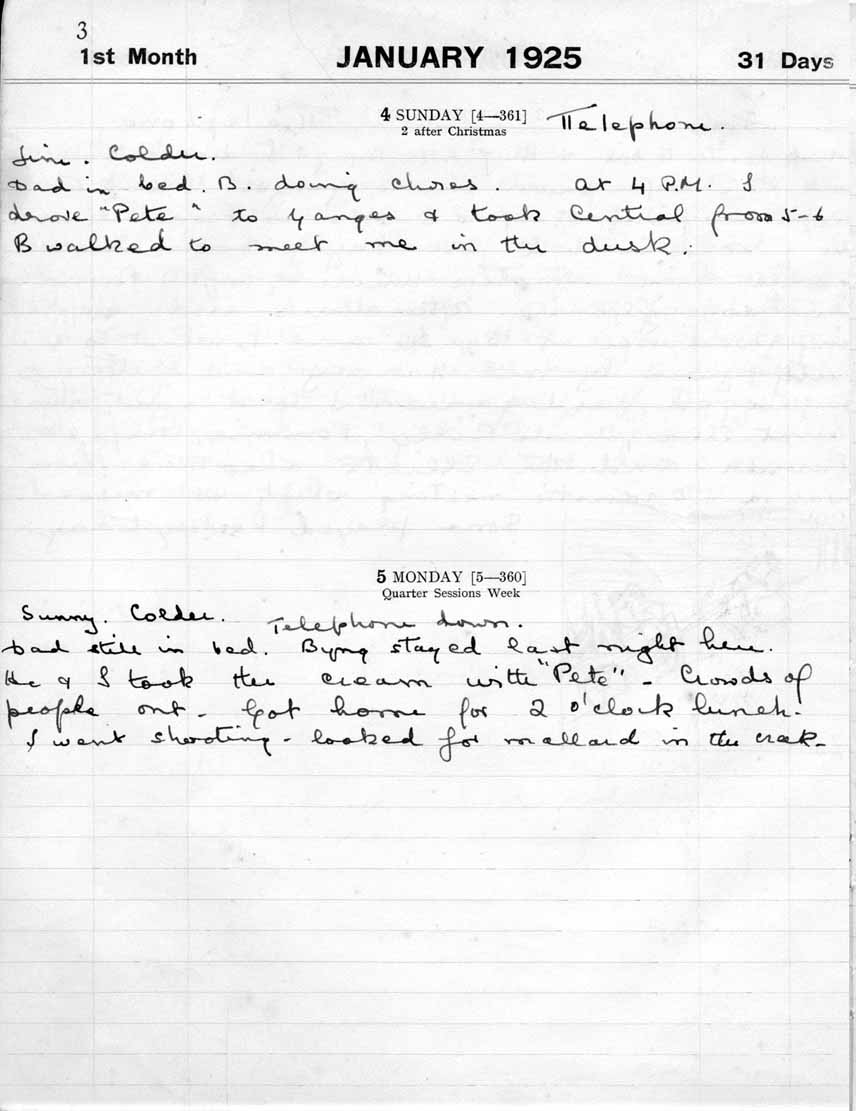 3
1st Month JANUARY 1925 31 Days
4 SUNDAY [4—361] Telephone.
2 after Christmas
Fine. Colder.
Dad in bed. B. doing chores. At 4 P.M. I
drove "Pete" to Ganges & took Central from 5-6
B walked to meet me in the dusk.
5 MONDAY [5—360]
Quarter Sessions Week
Sunny. Colder. Telephone down.
Dad still in bed. Byng stayed last night here.
He & I took the cream with "Pete" - Crowds of
people out - Got home for 2 o'clock lunch.
I went shooting - looked for mallard in the creek -